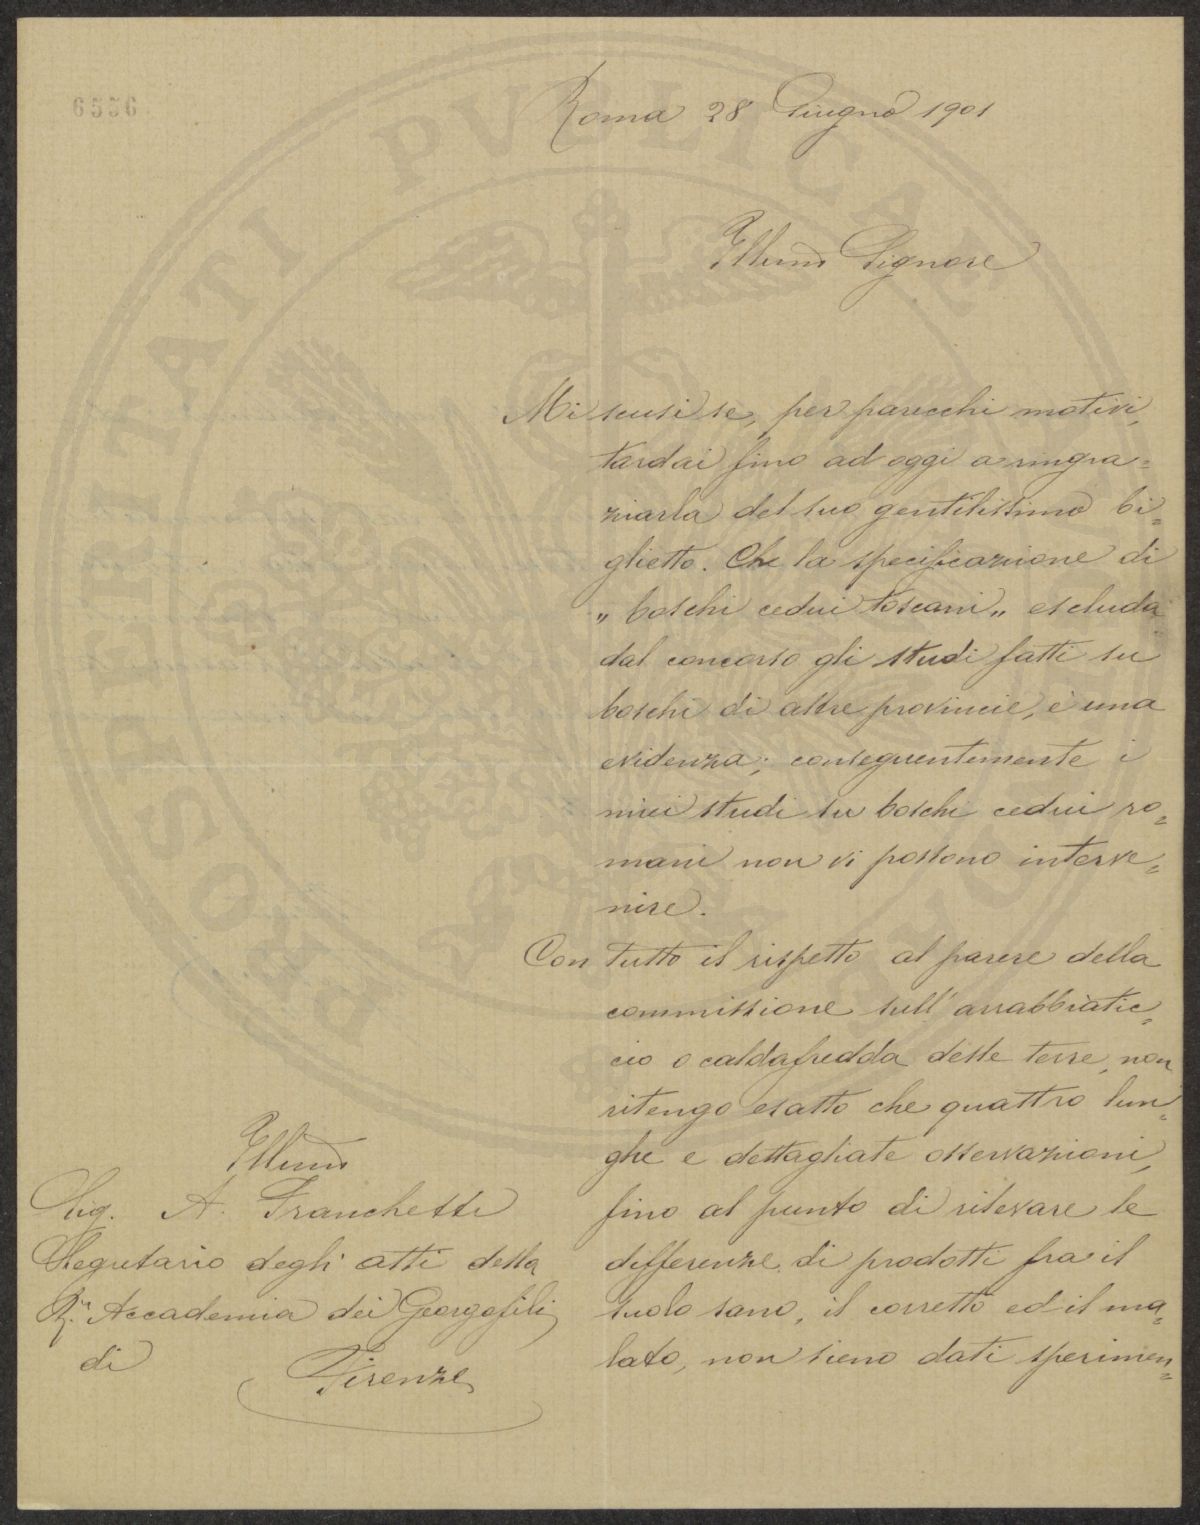 6556
Roma 28 Giugno 1901
Illmo Signore
Mi scusi se, per parecchi motivi,
tardai fino ad oggi a ringra=
ziarla del suo gentilissimo bi=
glietto. Che la specificazione di
„ boschi cedui toscani „ escluda
dal concorso gli studi fatti su
boschi di altre provincie, è una
evidenza; conseguentemente i
miei studi su boschi cedui ro=
mani non vi possono interve=
nire.
Con tutto il rispetto al parere della
commissione sull'arrabbiatic=
cio o caldafredda delle terre, non
ritengo esatto che quattro lun=
ghe e dettagliate osservazioni,
fino al punto di rilevare le
differenze di prodotti fra il
suolo sano, il corretto ed il ma=
lato, non sieno dati sperimen=
Illmo
Sig. A. Franchetti
Segretario degli atti della
R.a Accademia dei Georgofili
di
Firenze
PROSPERITATI PUBLICAE